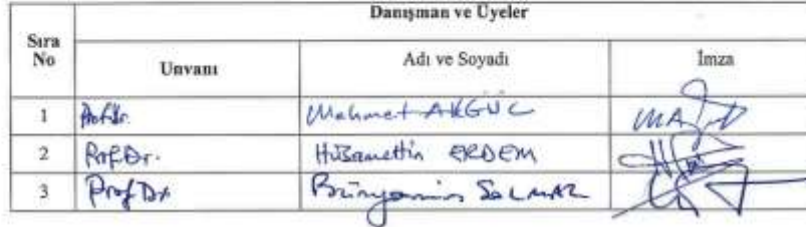 Danışman ve Üyeler
Sıra No Unvanı Adı ve Soyadı İmza
1 Prof.Dr. Mehmet AKGÜL
2 Prof.Dr. Hüsamettin ERDEM
3 Prof Dr Bünyamin SOLMAZ